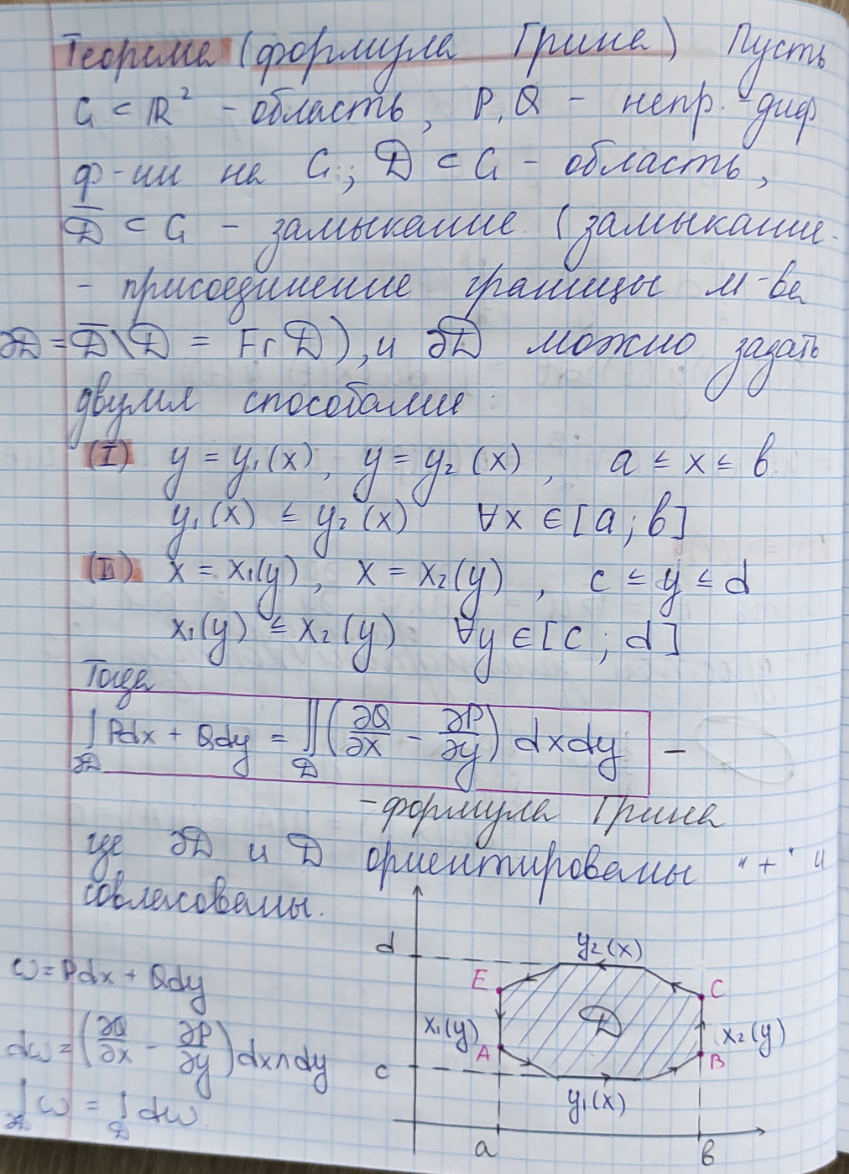 Теорема (формула Грина) Пусть
G ⊂ ℝ² - область, P, Q - непр.-диф
ф-ии на G; D ⊂ G - область,
D̅ ⊂ G - замыкание (замыкание -
- присоединение границы м-ва
∂D = D̅\D = Fr D), и ∂D можно задать
двумя способами:
(I) y = y₁(x), y = y₂(x), a ≤ x ≤ b.
y₁(x) ≤ y₂(x) ∀x ∈ [a; b]
(II) x = x₁(y), x = x₂(y), c ≤ y ≤ d
x₁(y) ≤ x₂(y) ∀y ∈ [c; d]
Тогда
∫_∂D Pdx + Qdy = ∬_D (∂Q/∂x - ∂P/∂y) dxdy -
- формула Грина
где ∂D и D ориентированы "+" и
согласованы.
ω = Pdx + Qdy
dω = (∂Q/∂x - ∂P/∂y) dx∧dy
∫_∂D ω = ∫_D dω
d
y₂(x)
E
C
x₁(y)
D
x₂(y)
A
B
c
y₁(x)
a
b